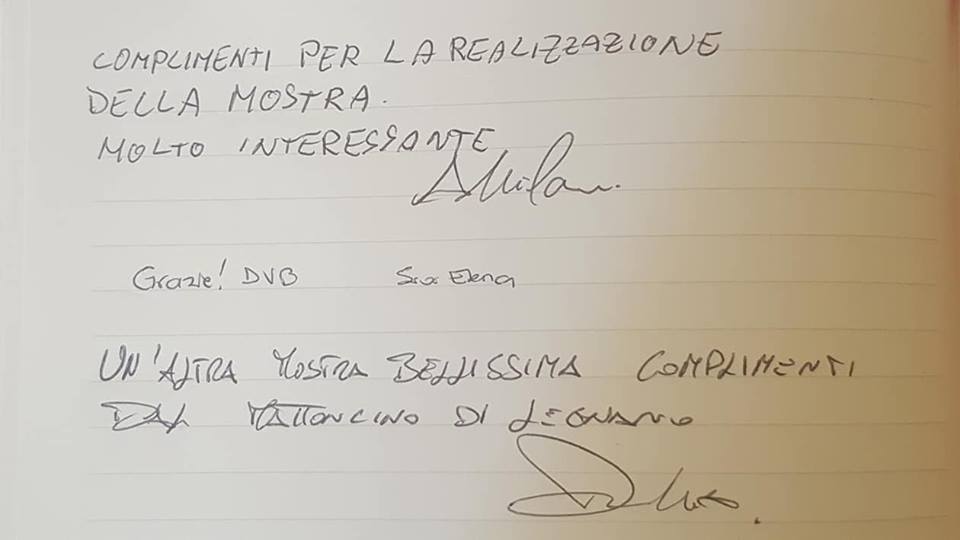 COMPLIMENTI PER LA REALIZZAZIONE
DELLA MOSTRA.
MOLTO INTERESSANTE
Grazie! DVB Elena
UN'ALTRA MOSTRA BELLISSIMA COMPLIMENTI
DAL MATTONCINO DI LEGNANO